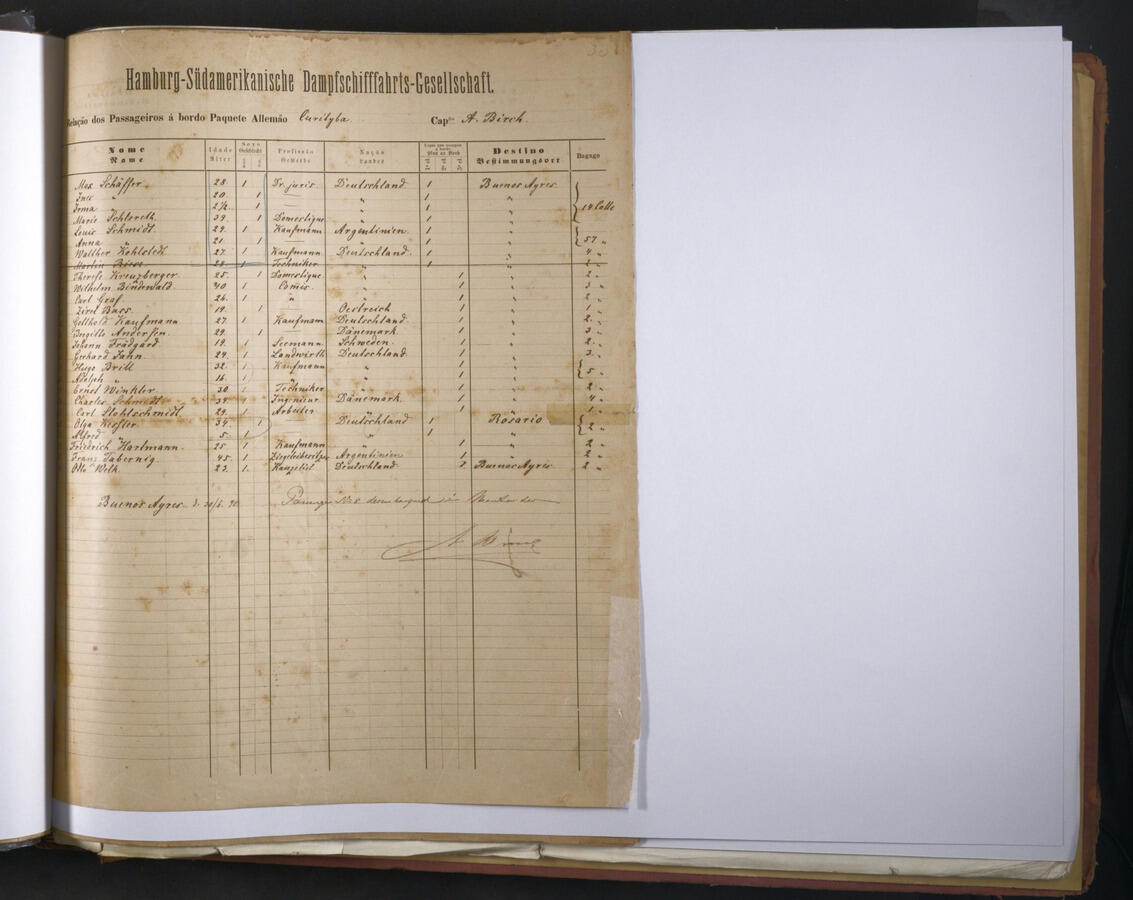 Hamburg-Südamerikanische Dampfschifffahrts-Gesellschaft.
Relação dos Passageiros á bordo Paquete Allemão Curityba Cap A. Birch.
Nome Idade Sexo Profissão Nação Destino Bagage
Name Alter Geschlecht Gewerbe Landes Bestimmungsort
Max Schäffer 28. 1 Dr. juris. Deutschland 1 Buenos Ayres
Ines " 20. 1 " 1 "
Irma " 2½ 1 " 1 " 14 Collo
Marie 39. 1 Domestique " 1 "
Louis Schmidt 29. 1 Kaufmann Argentinien 1 "
Anna " 21. 1 — " 1 " 57 "
Walther Kohlstedt 27. 1 Kaufmann Deutschland. 1 " 4 "
Martin 28. 1 Techniker " 1 " 2 "
Therese Kreuzberger 25. 1 Domestique " 1 " 2 "
Wilhelm Bindewald 40 1 Comis. " 1 " 3 "
Carl Graf 26. 1 " " 1 " 2 "
Bass 19. 1 — Oestreich 1 " 1 "
Gotthold Kaufmann 27. 1 Kaufmann Deutschland. 1 " 2 "
Birgitte Andersen. 29. 1 — Dänemark. 1 " 3 "
Johann Frädgård. 19. 1 Seemann Schweden. 1 " 2 "
Gerhard Jann 24. 1 Landwirth Deutschland. 1 " 3 "
Hugo Brill 32. 1 Kaufmann " 1 "
Adolph " 16. 1 " " 1 " 5 "
Ernst Winkler 30 1 Techniker " 1 " 2 "
Charles Schmidt 34. 1 Ingenieur Dänemark. 1 " 4 "
Carl Stohlschmidt. 29. 1 Arbeiter " 1 " 1 "
Olga Kessler. 34. 1 — Deutschland 1 Rosario
Alfred " 5. 1 — " 1 " 2 "
Friedrich Hartmann. 25 1 Kaufmann " 1 " 2 "
Franz Tabernig. 45. 1 Ziegeleibesitzer Argentinien 1 " 2 "
Otto Welk. 23. 1 Kanzelist Deutschland 1 Buenos Ayres 2 "
Buenos Ayres d. 90